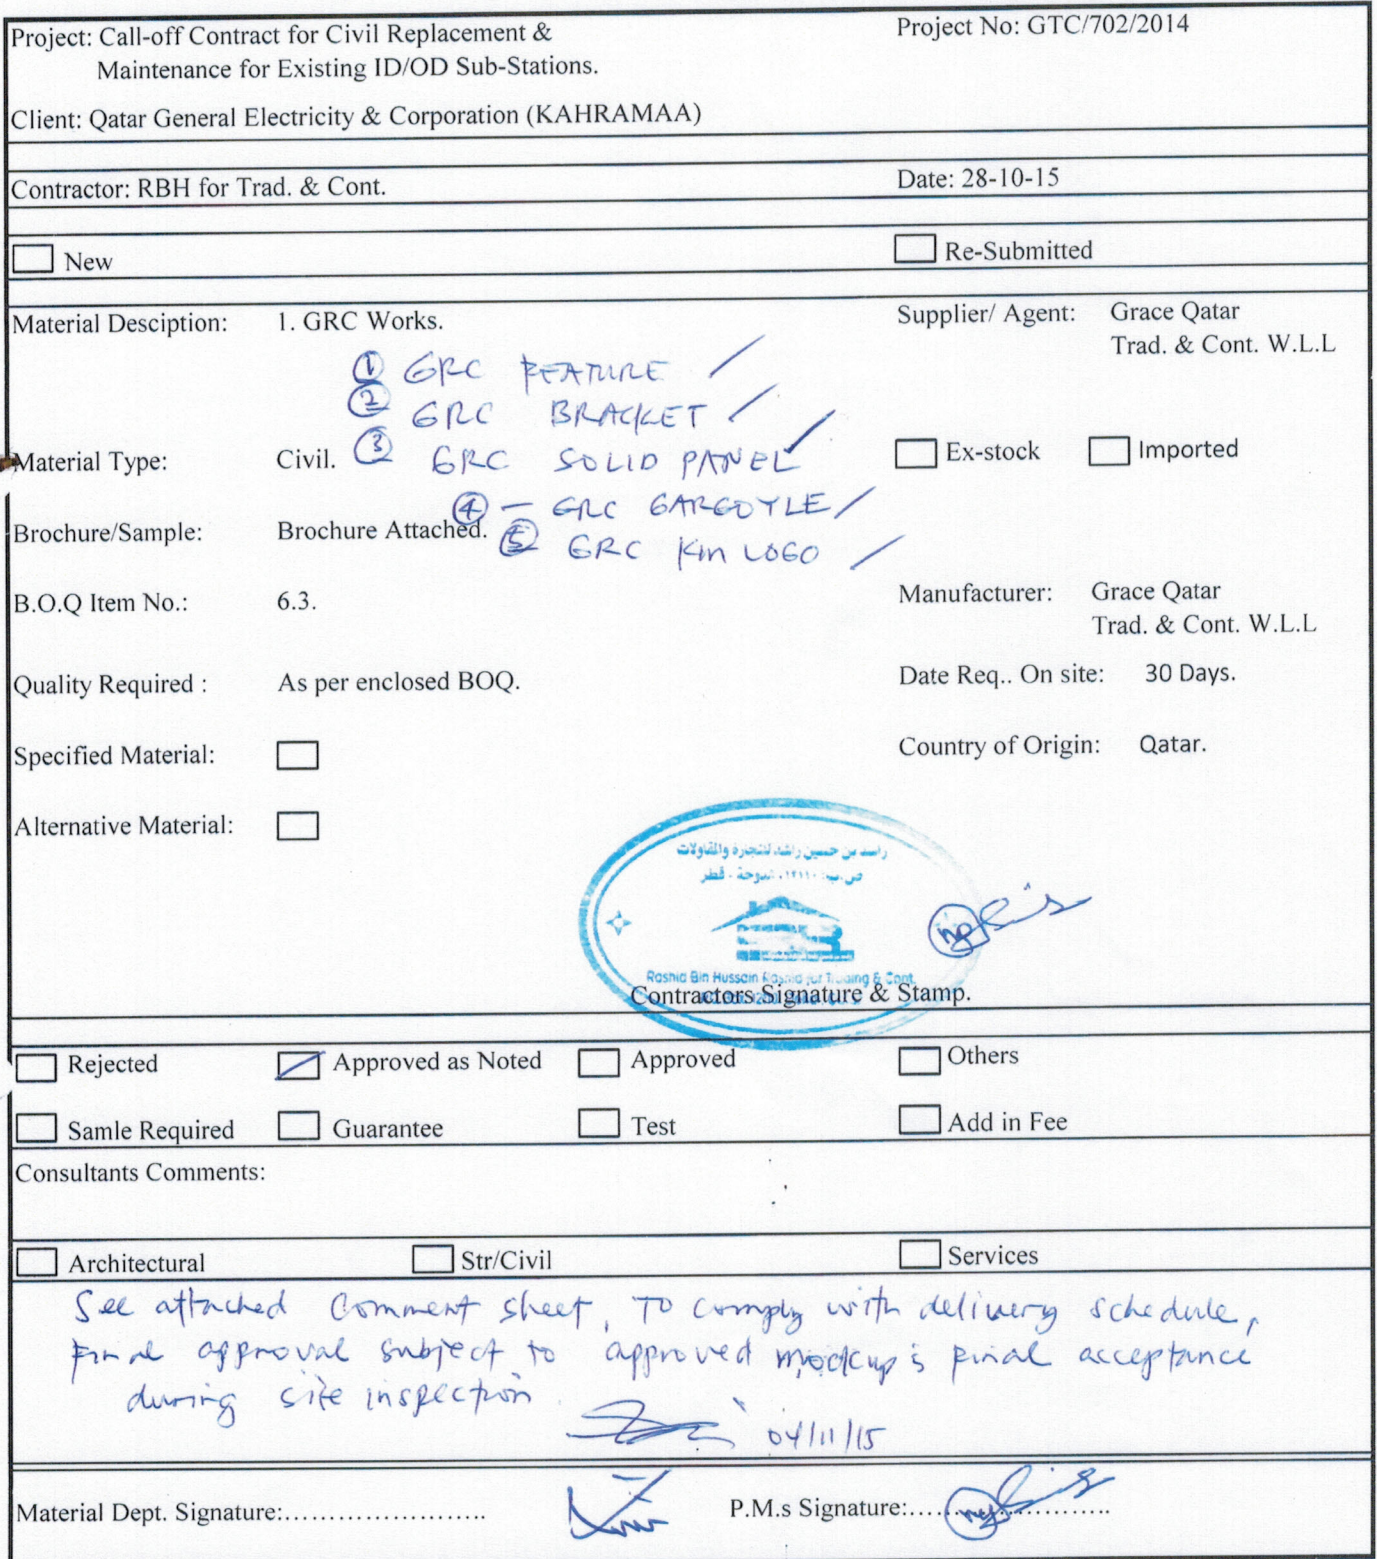 Project: Call-off Contract for Civil Replacement &
Maintenance for Existing ID/OD Sub-Stations.
Project No: GTC/702/2014
Client: Qatar General Electricity & Corporation (KAHRAMAA)
Contractor: RBH for Trad. & Cont.
Date: 28-10-15
New
Re-Submitted
Material Desciption: 1. GRC Works.
Supplier/ Agent: Grace Qatar
Trad. & Cont. W.L.L
① GRC FEATURE
② GRC BRACKET
③ GRC SOLID PANEL
Material Type: Civil.
Ex-stock
Imported
④ - GRC GARGOYLE
Brochure/Sample: Brochure Attached.
⑤ GRC Km LOGO
B.O.Q Item No.: 6.3.
Manufacturer: Grace Qatar
Trad. & Cont. W.L.L
Quality Required : As per enclosed BOQ.
Date Req.. On site: 30 Days.
Specified Material:
Country of Origin: Qatar.
Alternative Material:
راشد بن حسين راشد للتجارة والمقاولات
ص.ب: ١٢١١٠، الدوحة - قطر
Rashid Bin Hussain Rashid for Trading & Cont.
Contractors Signature & Stamp.
Rejected
Approved as Noted
Approved
Others
Samle Required
Guarantee
Test
Add in Fee
Consultants Comments:
Architectural
Str/Civil
Services
See attached Comment sheet, To comply with delivery schedule,
Final approval subject to approved mockup & final acceptance
during site inspection.
04/11/15
Material Dept. Signature:......................
P.M.s Signature:......................